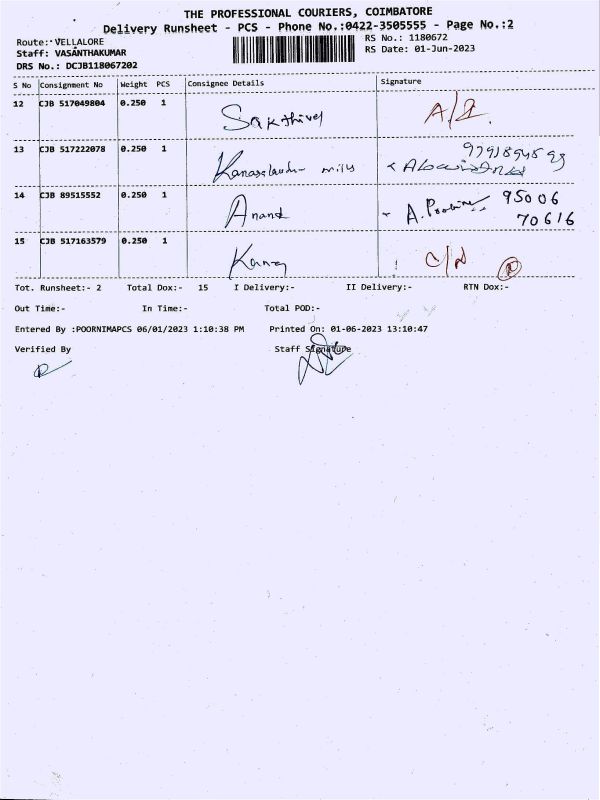 THE PROFESSIONAL COURIERS, COIMBATORE
Delivery Runsheet - PCS - Phone No.:0422-3505555 - Page No.:2
Route: VELLALORE
RS No.: 1180672
Staff: VASANTHAKUMAR
RS Date: 01-Jun-2023
DRS No.: DCJB118067202
S No Consignment No Weight PCS Consignee Details Signature
12 CJB 517049804 0.250 1 Sakthivel
13 CJB 517222078 0.250 1 mills
14 CJB 89515552 0.250 1 Anand A. 95006
70616
15 CJB 517163579 0.250 1
Tot. Runsheet:- 2 Total Dox:- 15 I Delivery:- II Delivery:- RTN Dox:-
Out Time:- In Time:- Total POD:-
Entered By :POORNIMAPCS 06/01/2023 1:10:38 PM Printed On: 01-06-2023 13:10:47
Verified By Staff Signature